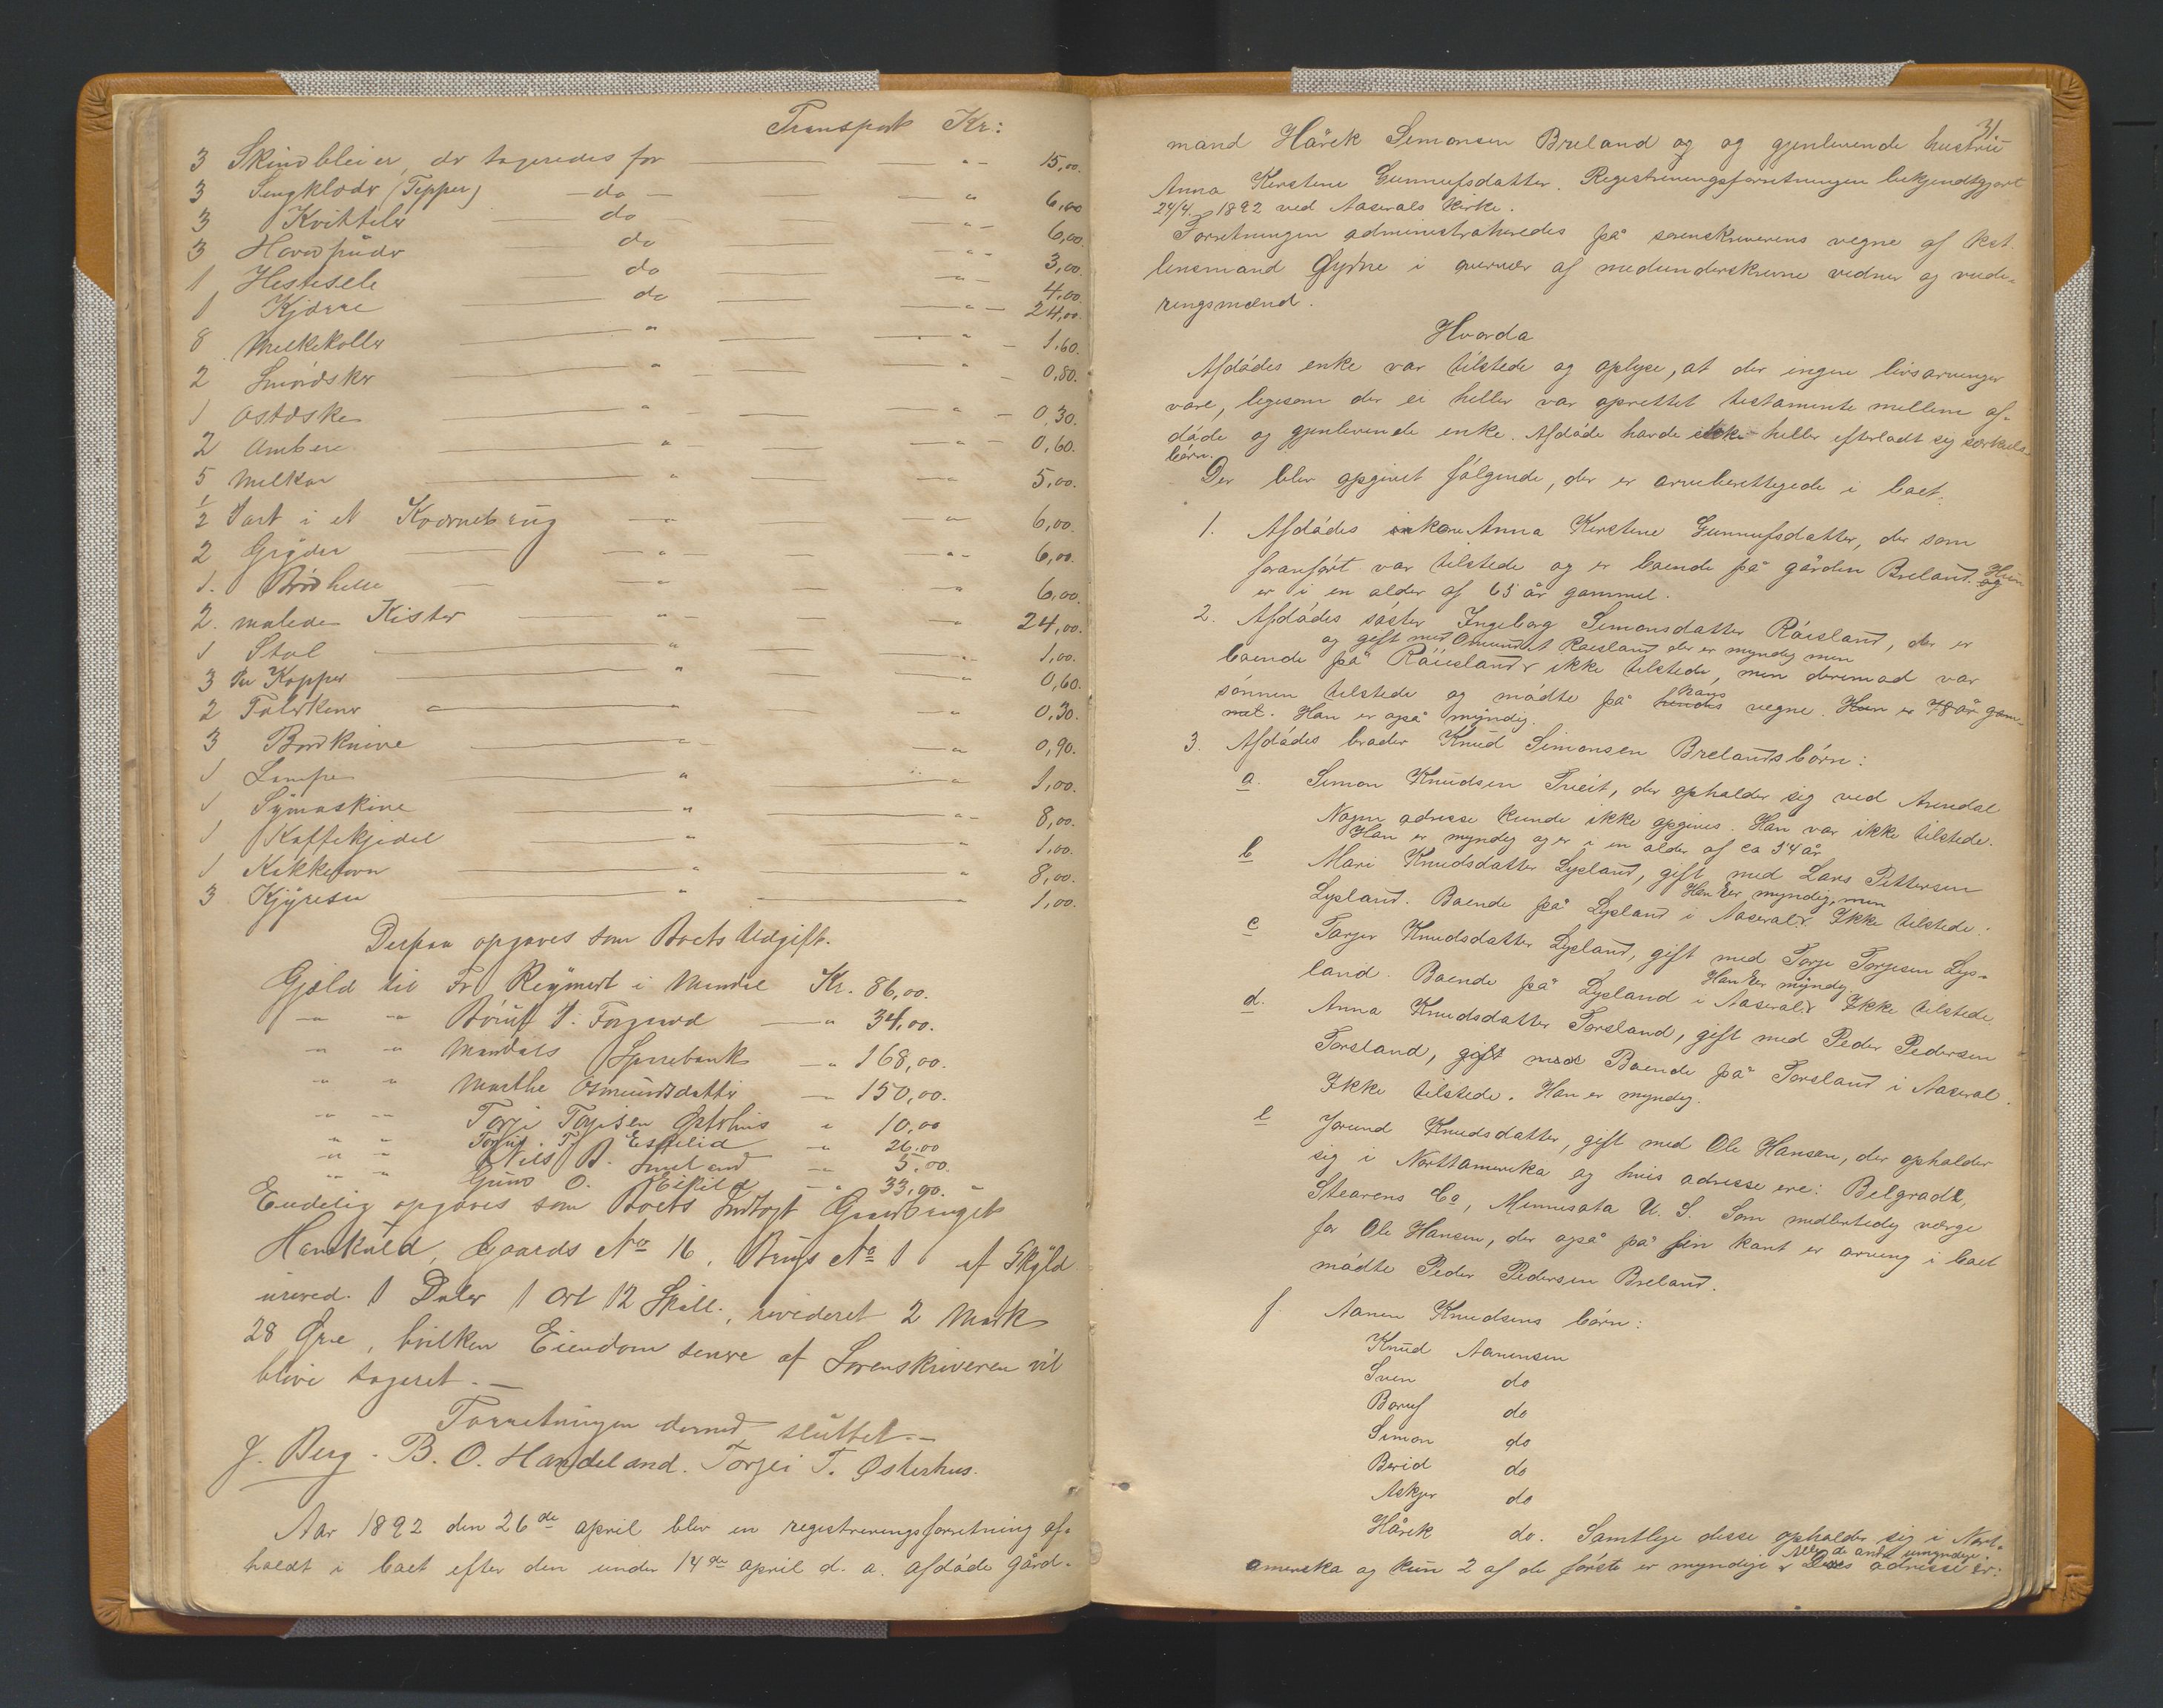 Transport Kr:
3 Skindbleier, do tageredes for — „ - 15,00.
3 Sengklæder (Tepper) — do — „ 6,00
3 Kvitteler do — „ - 6,00.
3 Hovedpuder do — „ - 3,00.
1 Hestesele do — „ - 4,00.
1 Kjærre do — „ - 24,00.
8 Melkekoller „ — „ - 1,60.
2 Smørdsker „ — „ - 0,80.
1 Ostæske „ — „ - 0,30.
2 Ambere „ — „ - 0,60.
5 Melkar „ — „ 5,00.
1/2 Part i et Kværnebrug „ — „ 6,00.
2 Gryder „ — „ - 6,00.
1. Brødhelle „ — „ 6,00.
2. malede Kister „ — „ 24,00.
1 Stol „ — „ 1,00.
3 Par Kopper „ — „ 0,60.
2 Talerkener „ — „ 0,30.
3 Bordknive „ — „ 0,90.
1 Lampe „ — „ 1,00.
1 Symaskine „ — „ - 8,00.
1 Kaffekjedel „ — „ 1,00.
1 Kakkelovn „ — „ 8,00.
3 Kjyresu „ — 1,00.
Derpaa opgaves som Boets Udgift.
Gjæld til Fr. Reymert i Mandal Kr. 86,00.
„ „ Børuf T. Forgard „ 34,00.
„ „ Mandals Sparebank „ 168,00.
„ „ Marthe Osmundsdatter — 150,00.
„ „ Torje Torjisen Østerhus „ 10,00
„ „ T. Eskelid „ 26,00
„ „ Nils B. Smeland „ 5,00.
„ „ Gunv O. Eikild „ 33,90. „
Endelig opgaves som Boets Indtægt Gaardbruget
Hanskuld, Gaards No 16, Brugs No 1 af Skyld
ureved. 1 Daler 1 Ort 12 Skill., revideret 2 Mark
28 Øre, hvilken Eiendom senere af Sorenskriveren vil
blive tageret. —
Forretningen dermed sluttet. —
J. Berg. B. O. Handeland. Torjei T. Østerhus.
Aar 1892 den 26de april blev en registreringsforretning af-
holdt i boet efter den under 14de april d. a. afdøde gård-
31.
mand Hårek Simonsen Breland og og gjenlevende hustru
Anna Kerstene Gunnufsdatter. Registreringsforretningen bekjendtgjort
24/4 1892 ved Aaserals kirke.
Forretningen administreredes på sorenskriverens vegne af kst.
lensmand Gydne i overvær af medunderskrevne vidner og vurde-
ringsmænd.
Hvorda
Afdødes enke var tilstede og oplyse, at der ingen livsarvinger
vare, ligesom der ei heller var oprettet testamente mellem af-
døde og gjenlevende enke. Afdøde havde ikke heller efterladt sig særkuls-
børn.
Der blev opgivet følgende, der er arveberettigede i boet.
1. Afdødes enke Anna Kerstene Gunnufsdatter, der som
foranført var tilstede og er boende på gården Breland. Hun og
er i en alder af 65 år gammel.
2. Afdødes søster Ingeborg Simonsdatter Røisland, der er
og gift med Omund T Røisland der er myndig men
boende på Røisland, ikke tilstede, men derimod var
sønnen tilstede og mødte på hendes hans vegne. Han er 78 år gam-
mel. Han er også myndig.
3. Afdødes broder Knud Simonsen Brelands børn:
a. Simon Knudsen Tveit, der opholder sig ved Arendal
Nogen adresse kunde ikke opgives. Han var ikke tilstede.
Han er myndig og er i en alder af ca 54 år
b Mari Knudsdatter Lysland, gift med Lars Pettersen
Lysland. Boende på Lysland i Aaseral. Han er myndig, men Ikke tilstede.
c Torjer Knudsdatter Lysland, gift med Torje Torjesen Lys-
land. Boende på Lysland i Aaseral. Han er myndig. Ikke tilstede
d. Anna Knudsdatter Torsland, gift med Peder Pedersen
Torsland, gift med Boende på Torsland i Aaseral.
Ikke tilstede. Han er myndig.
e Jorund Knudsdatter, gift med Ole Hansen, der opholder
sig i Nortamerika og hvis adresse ere: Belgrade,
Stearens Co, Minnesota U. S. Som midlertidig værge
for Ole Hansen, der også på sin kant er arving i boet
mødte Peder Pedersen Breland.
f. Aanen Knudsens børn:
Knud Aanensen
Sven do
Boruf do
Simon do
Berid do
Askjer do
Hårek do. Samtlige disse opholder sig i Nort-
amerika og kun 2 af de første er myndige. Alle de andre umyndige. Deres adresse er: